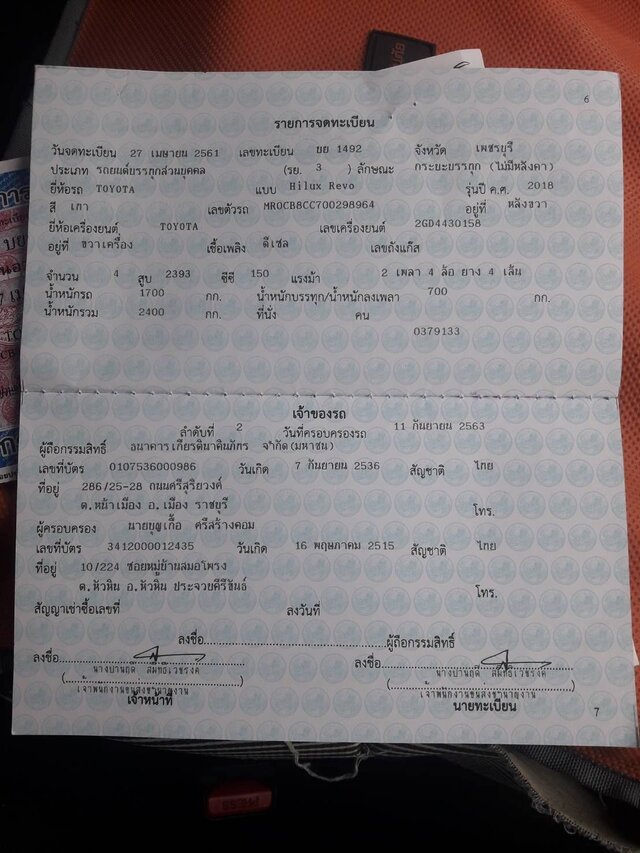 6
รายการจดทะเบียน
วันจดทะเบียน 27 เมษายน 2561 เลขทะเบียน บย 1492 จังหวัด เพชรบุรี
ประเภท รถยนต์บรรทุกส่วนบุคคล (รย. 3 ) ลักษณะ กระบะบรรทุก (ไม่มีหลังคา)
ยี่ห้อรถ TOYOTA แบบ Hilux Revo รุ่นปี ค.ศ. 2018
สี เทา เลขตัวรถ MR0CB8CC700298964 อยู่ที่ หลังขวา
ยี่ห้อเครื่องยนต์ TOYOTA เลขเครื่องยนต์ 2GD4430158
อยู่ที่ ขวาเครื่อง เชื้อเพลิง ดีเซล เลขถังแก๊ส
จำนวน 4 สูบ 2393 ซีซี 150 แรงม้า 2 เพลา 4 ล้อ ยาง 4 เส้น
น้ำหนักรถ 1700 กก. น้ำหนักบรรทุก/น้ำหนักลงเพลา 700 กก.
น้ำหนักรวม 2400 กก. ที่นั่ง คน
0379133
เจ้าของรถ
ลำดับที่ 2 วันที่ครอบครองรถ 11 กันยายน 2563
ผู้ถือกรรมสิทธิ์ ธนาคารเกียรตินาคินภัทร จำกัด(มหาชน)
เลขที่บัตร 0107536000986 วันเกิด 7 กันยายน 2536 สัญชาติ ไทย
ที่อยู่ 286/25-28 ถนนศรีสุริยวงศ์
ต.หน้าเมือง อ.เมือง ราชบุรี โทร.
ผู้ครอบครอง นายบุญเกื้อ ศรีสร้างคอม
เลขที่บัตร 3412000012435 วันเกิด 16 พฤษภาคม 2515 สัญชาติ ไทย
ที่อยู่ 10/224 ซอยหมู่บ้านสมอโพรง
ต.หัวหิน อ.หัวหิน ประจวบคีรีขันธ์ โทร.
สัญญาเช่าซื้อเลขที่ ลงวันที่
ลงชื่อ ผู้ถือกรรมสิทธิ์
ลงชื่อ ลงชื่อ
เจ้าพนักงานขนส่งชำนาญงาน เจ้าพนักงานขนส่งชำนาญงาน
เจ้าหน้าที่ นายทะเบียน
7
PRESS